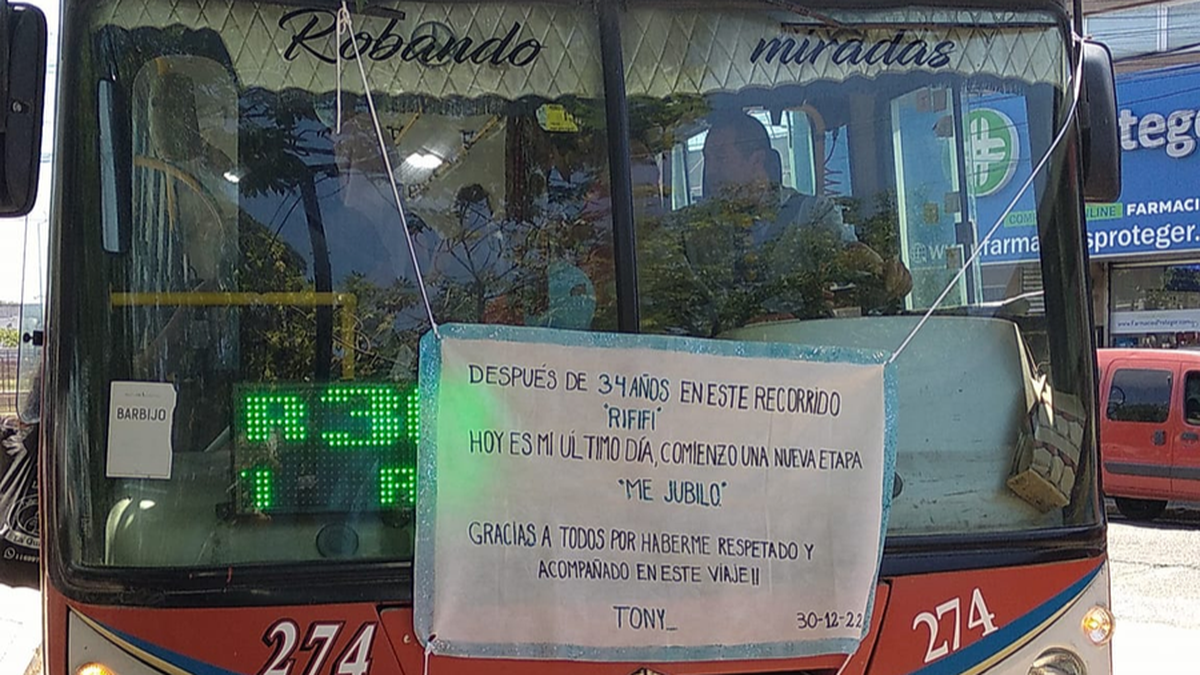 Robando miradas
BARBIJO
R3
1 A
DESPUÉS DE 34 AÑOS EN ESTE RECORRIDO
"RIFIFI"
HOY ES MI ÚLTIMO DÍA, COMIENZO UNA NUEVA ETAPA
"ME JUBILO."
GRACIAS A TODOS POR HABERME RESPETADO Y
ACOMPAÑADO EN ESTE VIAJE!!
TONY_ 30-12-22
274
274
teg
ONLINE FARMACI
farma sproteger.